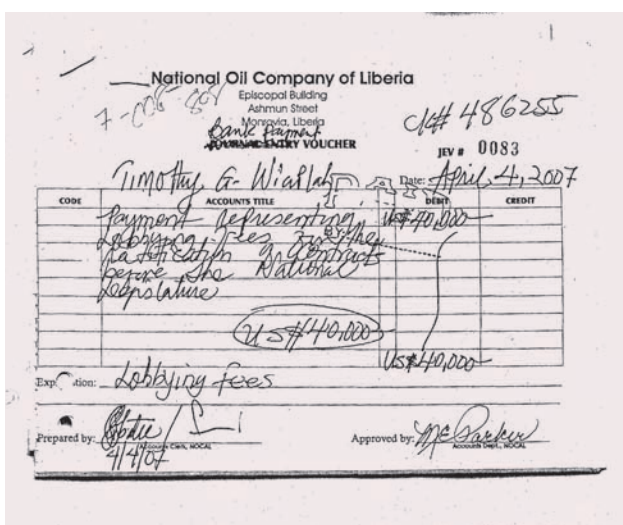 National Oil Company of Liberia
Episcopal Building
Ashmun Street
Monrovia, Liberia
Bank Payment
JOURNAL ENTRY VOUCHER
CK# 486255
JEV # 0083
Timothy G. Wiaplah
Date: April, 4, 2007
CODE ACCOUNTS TITLE DEBIT CREDIT
Payment representing US$40,000
Lobbying fees for the
ratification of contracts
before the National
Legislature
US$40,000
US$40,000
Lobbying fees
Prepared by:
Accounts Clerk, NOCAL
4/4/07
Approved by: Parker
Accounts Dept., NOCAL